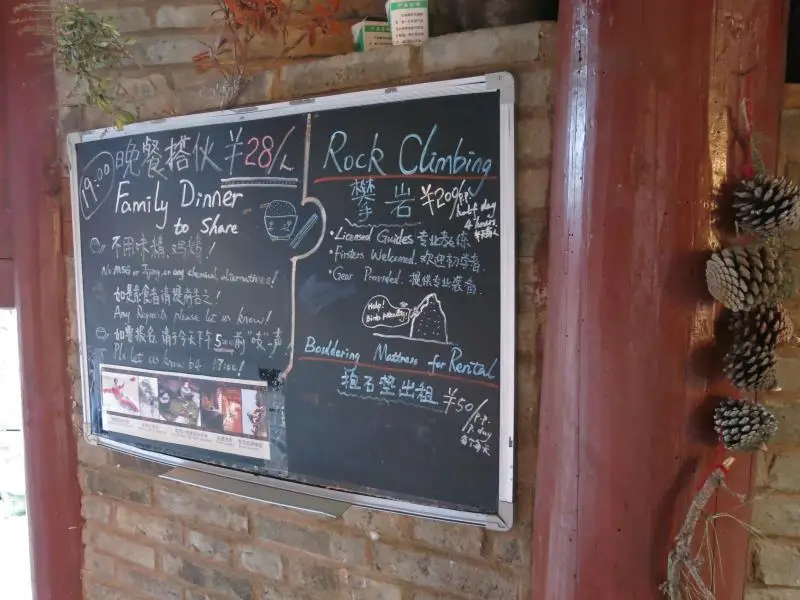 19:00
晚餐搭伙 ¥28/人
Family Dinner
to share
不用味精,鸡精!
No MSG or Jijing, or any chemical alternatives!
如是素食者请提前告之!
Any Requests please let us know!
如要报名,请于今天下午5:00前"吱"声
Pls let us know b4 17:00!
Rock Climbing
攀岩 ¥200/p.p.
half day
4 hours
·Licensed Guides 专业教练
·Firsters Welcomed. 欢迎初学者.
·Gear Provided. 提供专业装备.
Help!
Bouldering Mattress for Rental
抱石垫出租 ¥50/p.p.
p. day
每个每天